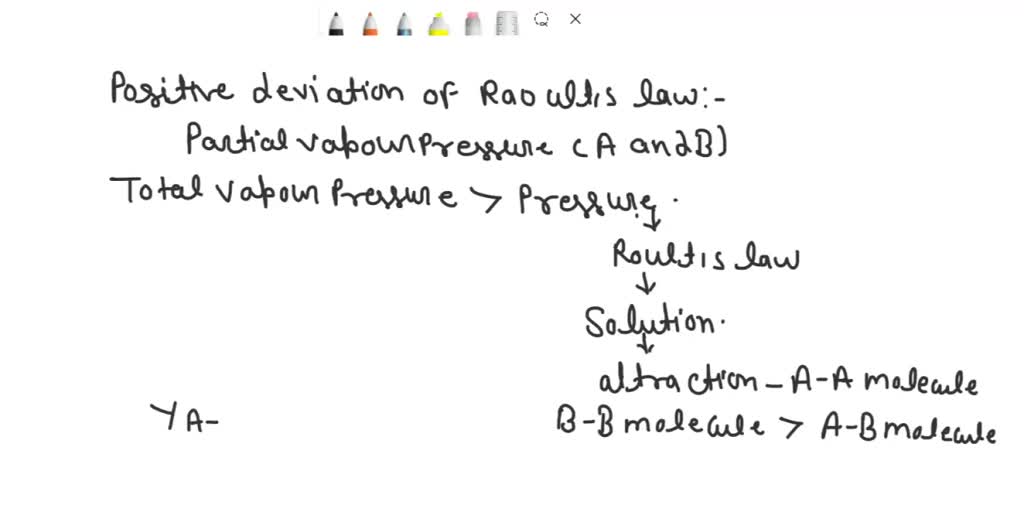 Positive deviation of Raoult's law:-
Partial vapour Pressure (A and B)
Total vapour Pressure > Pressure.
↓
Roult's law
↓
Solution.
↓
attraction - A-A molecule
B-B molecule > A-B molecule
YA-